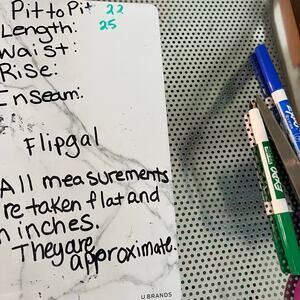 Pit to Pit 22
Length: 25
Waist:
Rise:
Inseam:
Flipgal
All measurements
re taken flat and
n inches.
They are
approximate.
U BRANDS
EXPO
EXPO